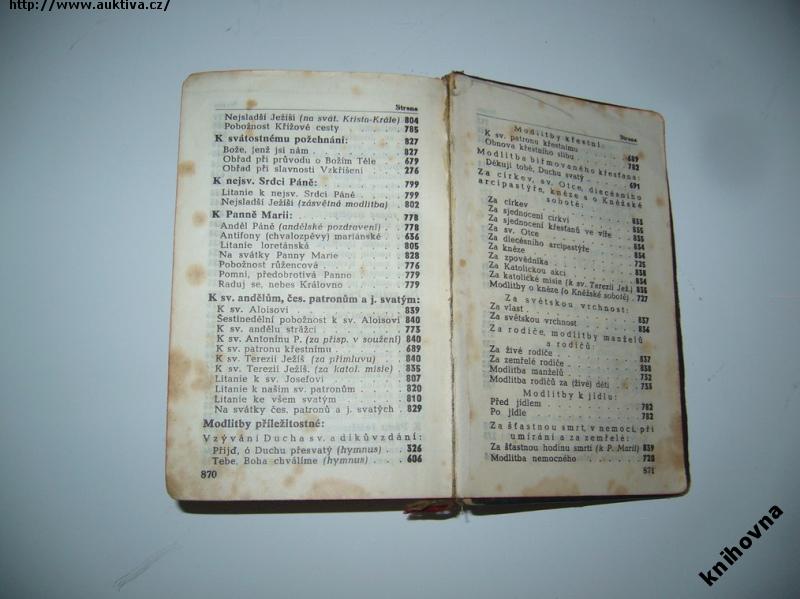 http://www.auktiva.cz/
Strana
Nejsladší Ježíši (na svát. Krista-Krále) 804
Pobožnost Křížové cesty 785
K svátostnému požehnání: 827
Bože, jenž jsi nám 827
Obřad při průvodu o Božím Těle 679
Obřad při slavnosti Vzkříšení 276
K nejsv. Srdci Páně: 799
Litanie k nejsv. Srdci Páně 799
Nejsladší Ježíši (zásvětná modlitba) 802
K Panně Marii: 778
Anděl Páně (andělské pozdravení) 778
Antifony (chvalozpěvy) mariánské 636
Litanie loretánská 805
Na svátky Panny Marie 828
Pobožnost růžencová 776
Pomni, předobrotivá Panno 779
Raduj se, nebes Královno 779
K sv. andělům, čes. patronům a j. svatým:
K sv. Aloisovi 839
Šestinedělní pobožnost k sv. Aloisovi 840
K sv. andělu strážci 773
K sv. Antonínu P. (za přisp. v soužení) 840
K sv. patronu křestnímu 689
K sv. Terezii Ježíš (za přímluvu) 840
K sv. Terezii Ježíš. (za katol. misie) 835
Litanie k sv. Josefovi 807
Litanie k našim sv. patronům 820
Litanie ke všem svatým 810
Na svátky čes. patronů a j. svatých 829
Modlitby příležitostné:
Vzývání Ducha sv. a díkůvzdání:
Přijď, ó Duchu přesvatý (hymnus) 326
Tebe, Boha chválíme (hymnus) 606
870
Strana
Modlitby křestní:
K sv. patronu křestnímu 689
Obnova křestního slibu 782
Modlitba biřmovaného křesťana:
Děkuji tobě, Duchu svatý 691
Za církev, sv. Otce, diecésního
arcipastýře, kněze a o Kněžské
sobotě:
Za církev 833
Za sjednocení církví 835
Za sjednocení křesťanů ve víře 835
Za sv. Otce 834
Za diecésního arcipastýře 834
Za kněze 725
Za zpovědníka 838
Za Katolickou akci 835
Za katolické misie (k sv. Terezii Jež.) 727
Modlitby o kněze (o Kněžské sobotě)
Za světskou vrchnost:
Za vlast 837
Za světskou vrchnost 836
Za rodiče, modlitby manželů
a rodičů:
Za živé rodiče 837
Za zemřelé rodiče 838
Modlitba manželů 732
Modlitba rodičů za (živé) děti 733
Modlitby k jídlu:
Před jídlem 782
Po jídle 782
Za šťastnou smrt, v nemoci, při
umírání a za zemřelé:
Za šťastnou hodinu smrti (k P. Marii) 839
Modlitba nemocného 728
871
knihovna